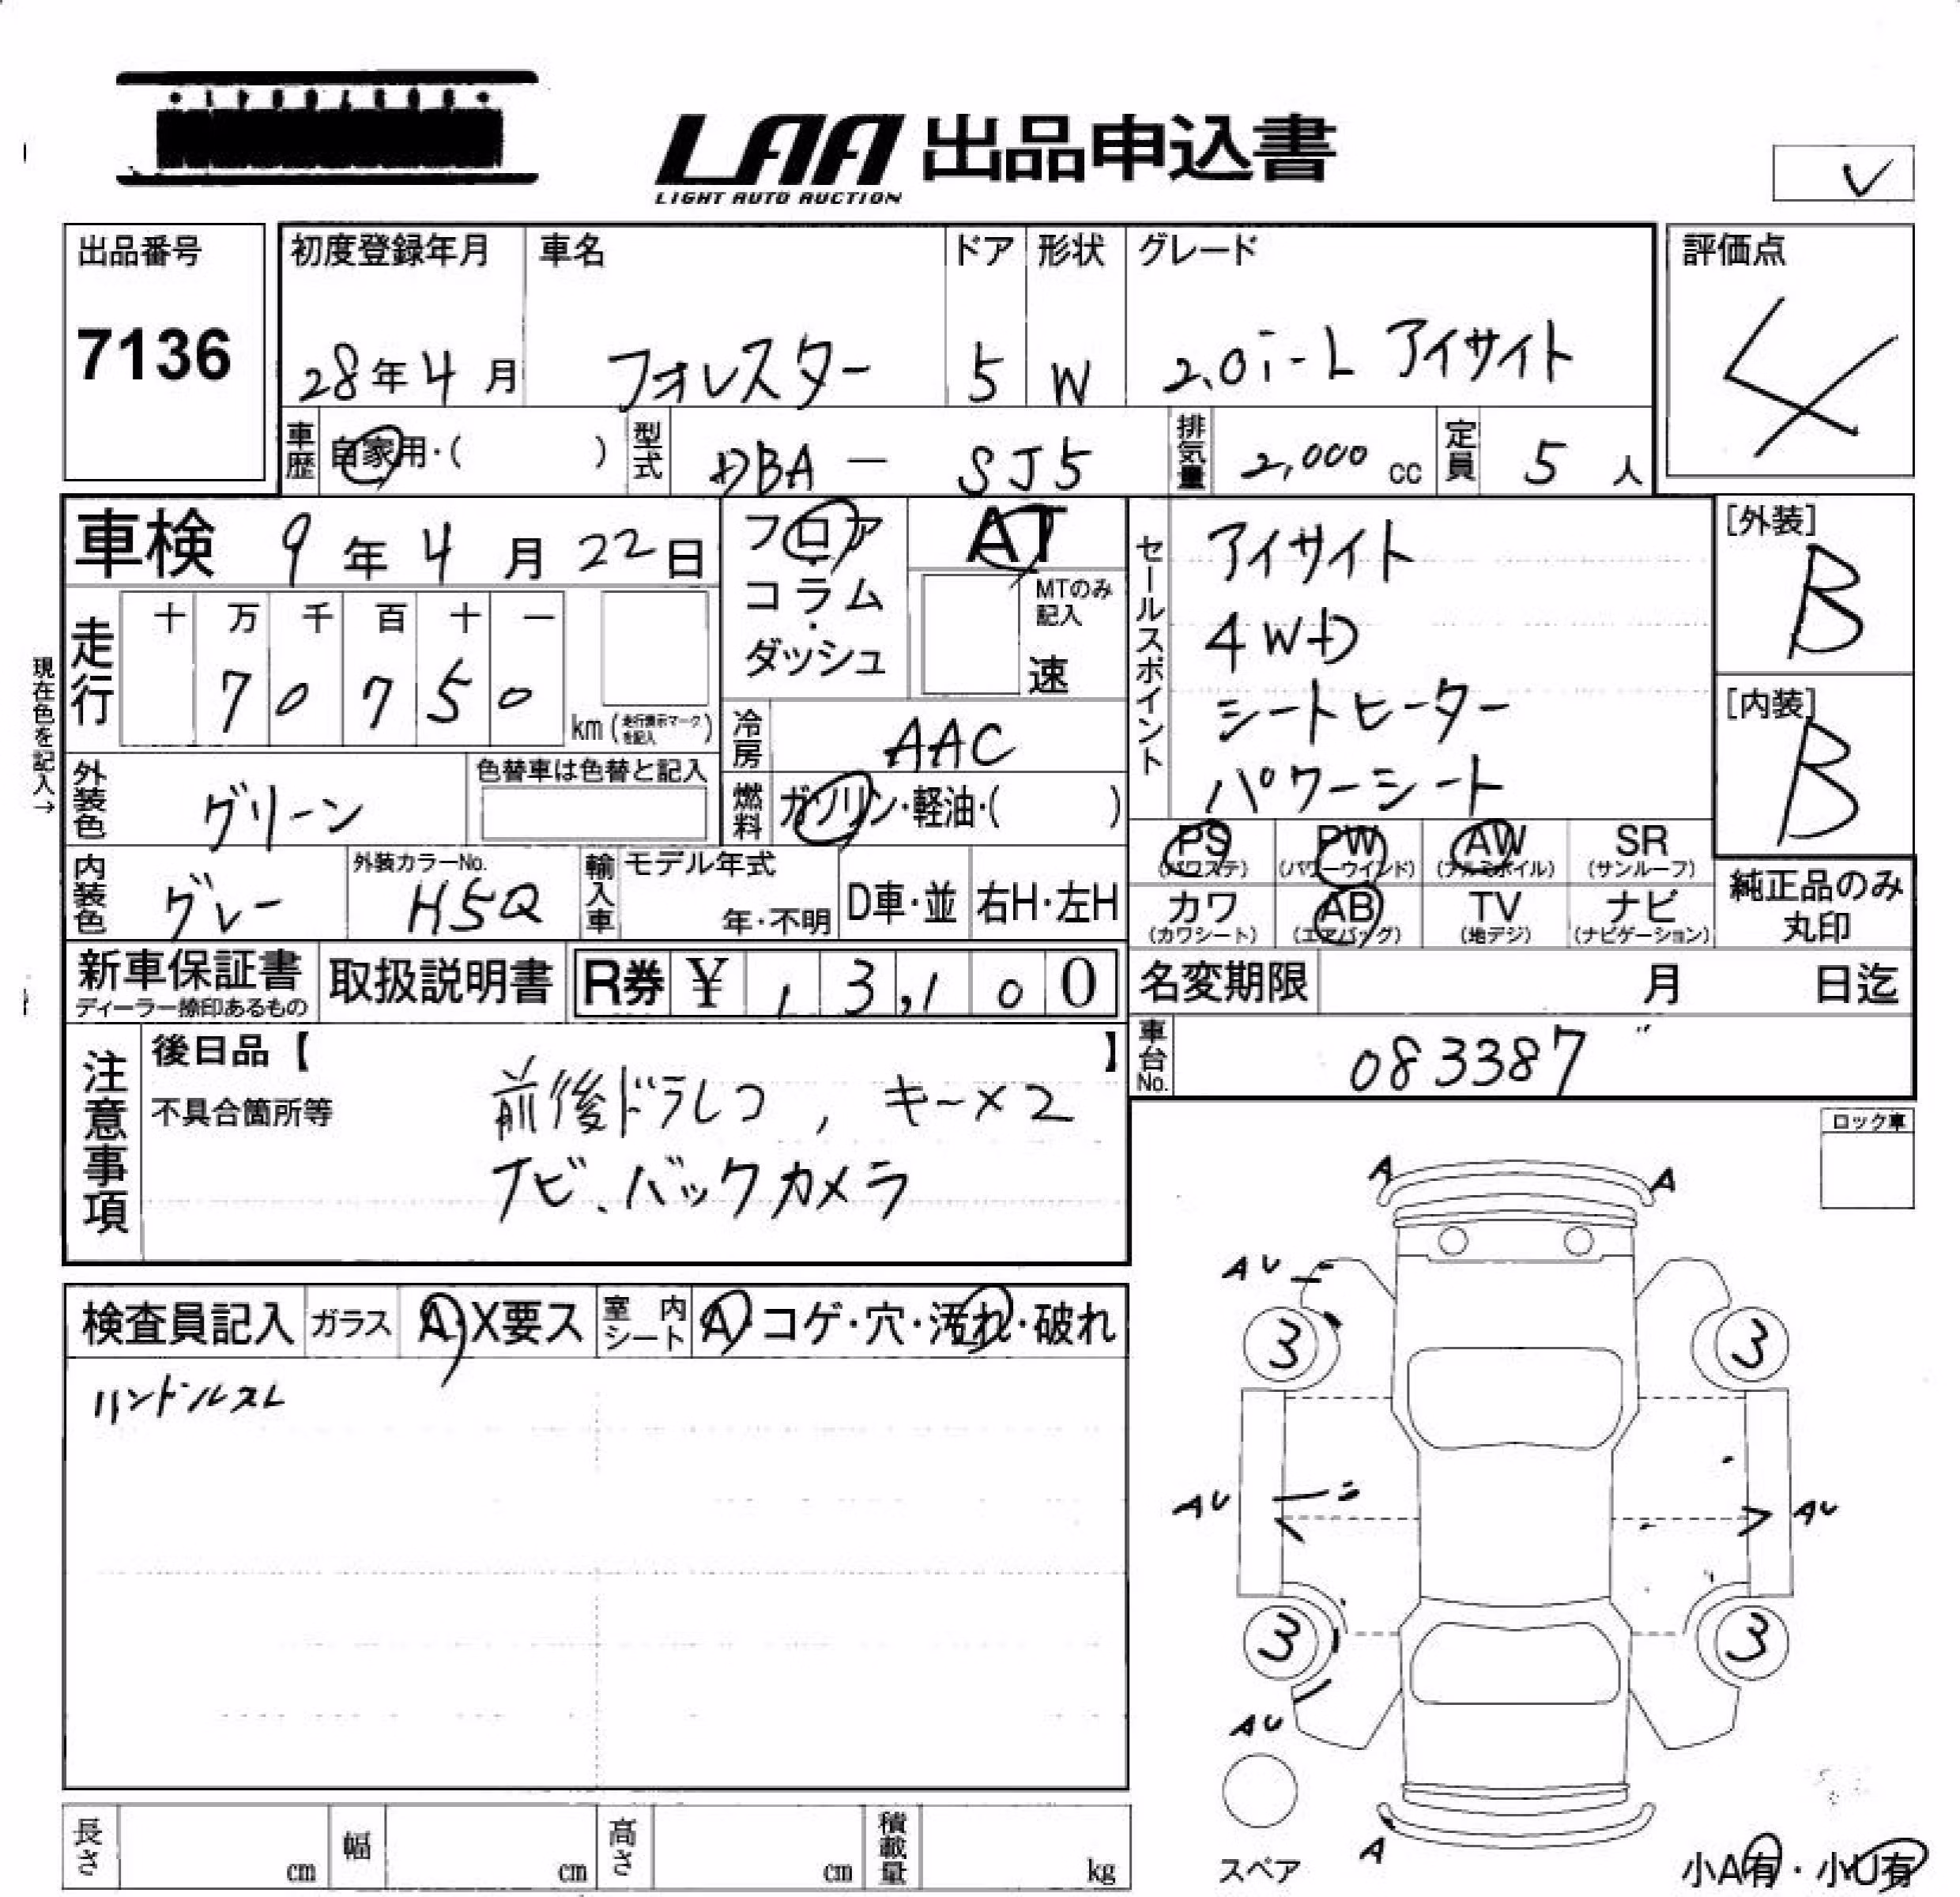 LAA 出品申込書
LIGHT AUTO AUCTION
出品番号
7136
初度登録年月 車名 ドア 形状 グレード
28年4月 フォレスター 5 W 2.0i-L アイサイト
評価点
4
車歴 自家用・( ) 型式 DBA - SJ5 排気量 2,000 cc 定員 5 人
車検 9年4月22日
フロア・コラム・ダッシュ
AT
MTのみ記入
速
セールスポイント
アイサイト
4WD
シートヒーター
パワーシート
[外装]
B
[内装]
B
現在色を記入→
走行 十 万 千 百 十 一
70750 km (走行表示マークを記入)
冷房 AAC
外装色 グリーン 色替車は色替と記入
燃料 ガソリン・軽油・( )
PS (パワステ) PW (パワーウインド) AW (アルミホイル) SR (サンルーフ)
カワ (カワシート) AB (エアバッグ) TV (地デジ) ナビ (ナビゲーション)
純正品のみ
丸印
内装色 グレー 外装カラーNo. H5Q 輸入車 モデル年式 年・不明 D車・並 右H・左H
新車保証書 取扱説明書 R券 ¥ 13,100
ディーラー捺印あるもの
名変期限 月 日迄
車台No. 083387
注意事項
後日品【 】
不具合箇所等
前後ドラレコ, キー×2
ナビ、バックカメラ
ロック車
検査員記入 ガラス A・X要ス 室内シート A・コゲ・穴・汚れ・破れ
ハンドルスレ
A A
AU
3 3
AU AU
3 3
AU
スペア
A
小A有・小U有
長さ cm 幅 cm 高さ cm 積載量 kg